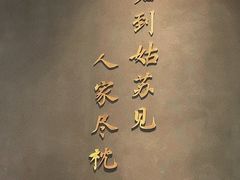 到姑苏见
人家尽枕